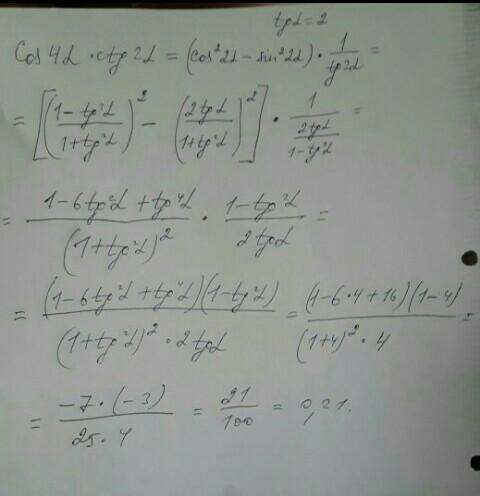 tgα = 2
Cos 4α · ctg 2α = (cos²2α – sin²2α) · 1/tg2α =
= [((1–tg²α)/(1+tg²α))² – (2tgα/(1+tg²α))²] · 1/(2tgα/(1–tg²α)) =
= (1–6tg²α+tg⁴α)/(1+tg²α)² · (1–tg²α)/(2tgα) =
= (1–6tg²α+tg⁴α)(1–tg²α)/((1+tg²α)²·2tgα) = (1–6·4+16)(1–4)/((1+4)²·4) =
= –7·(–3)/(25·4) = 21/100 = 0,21.